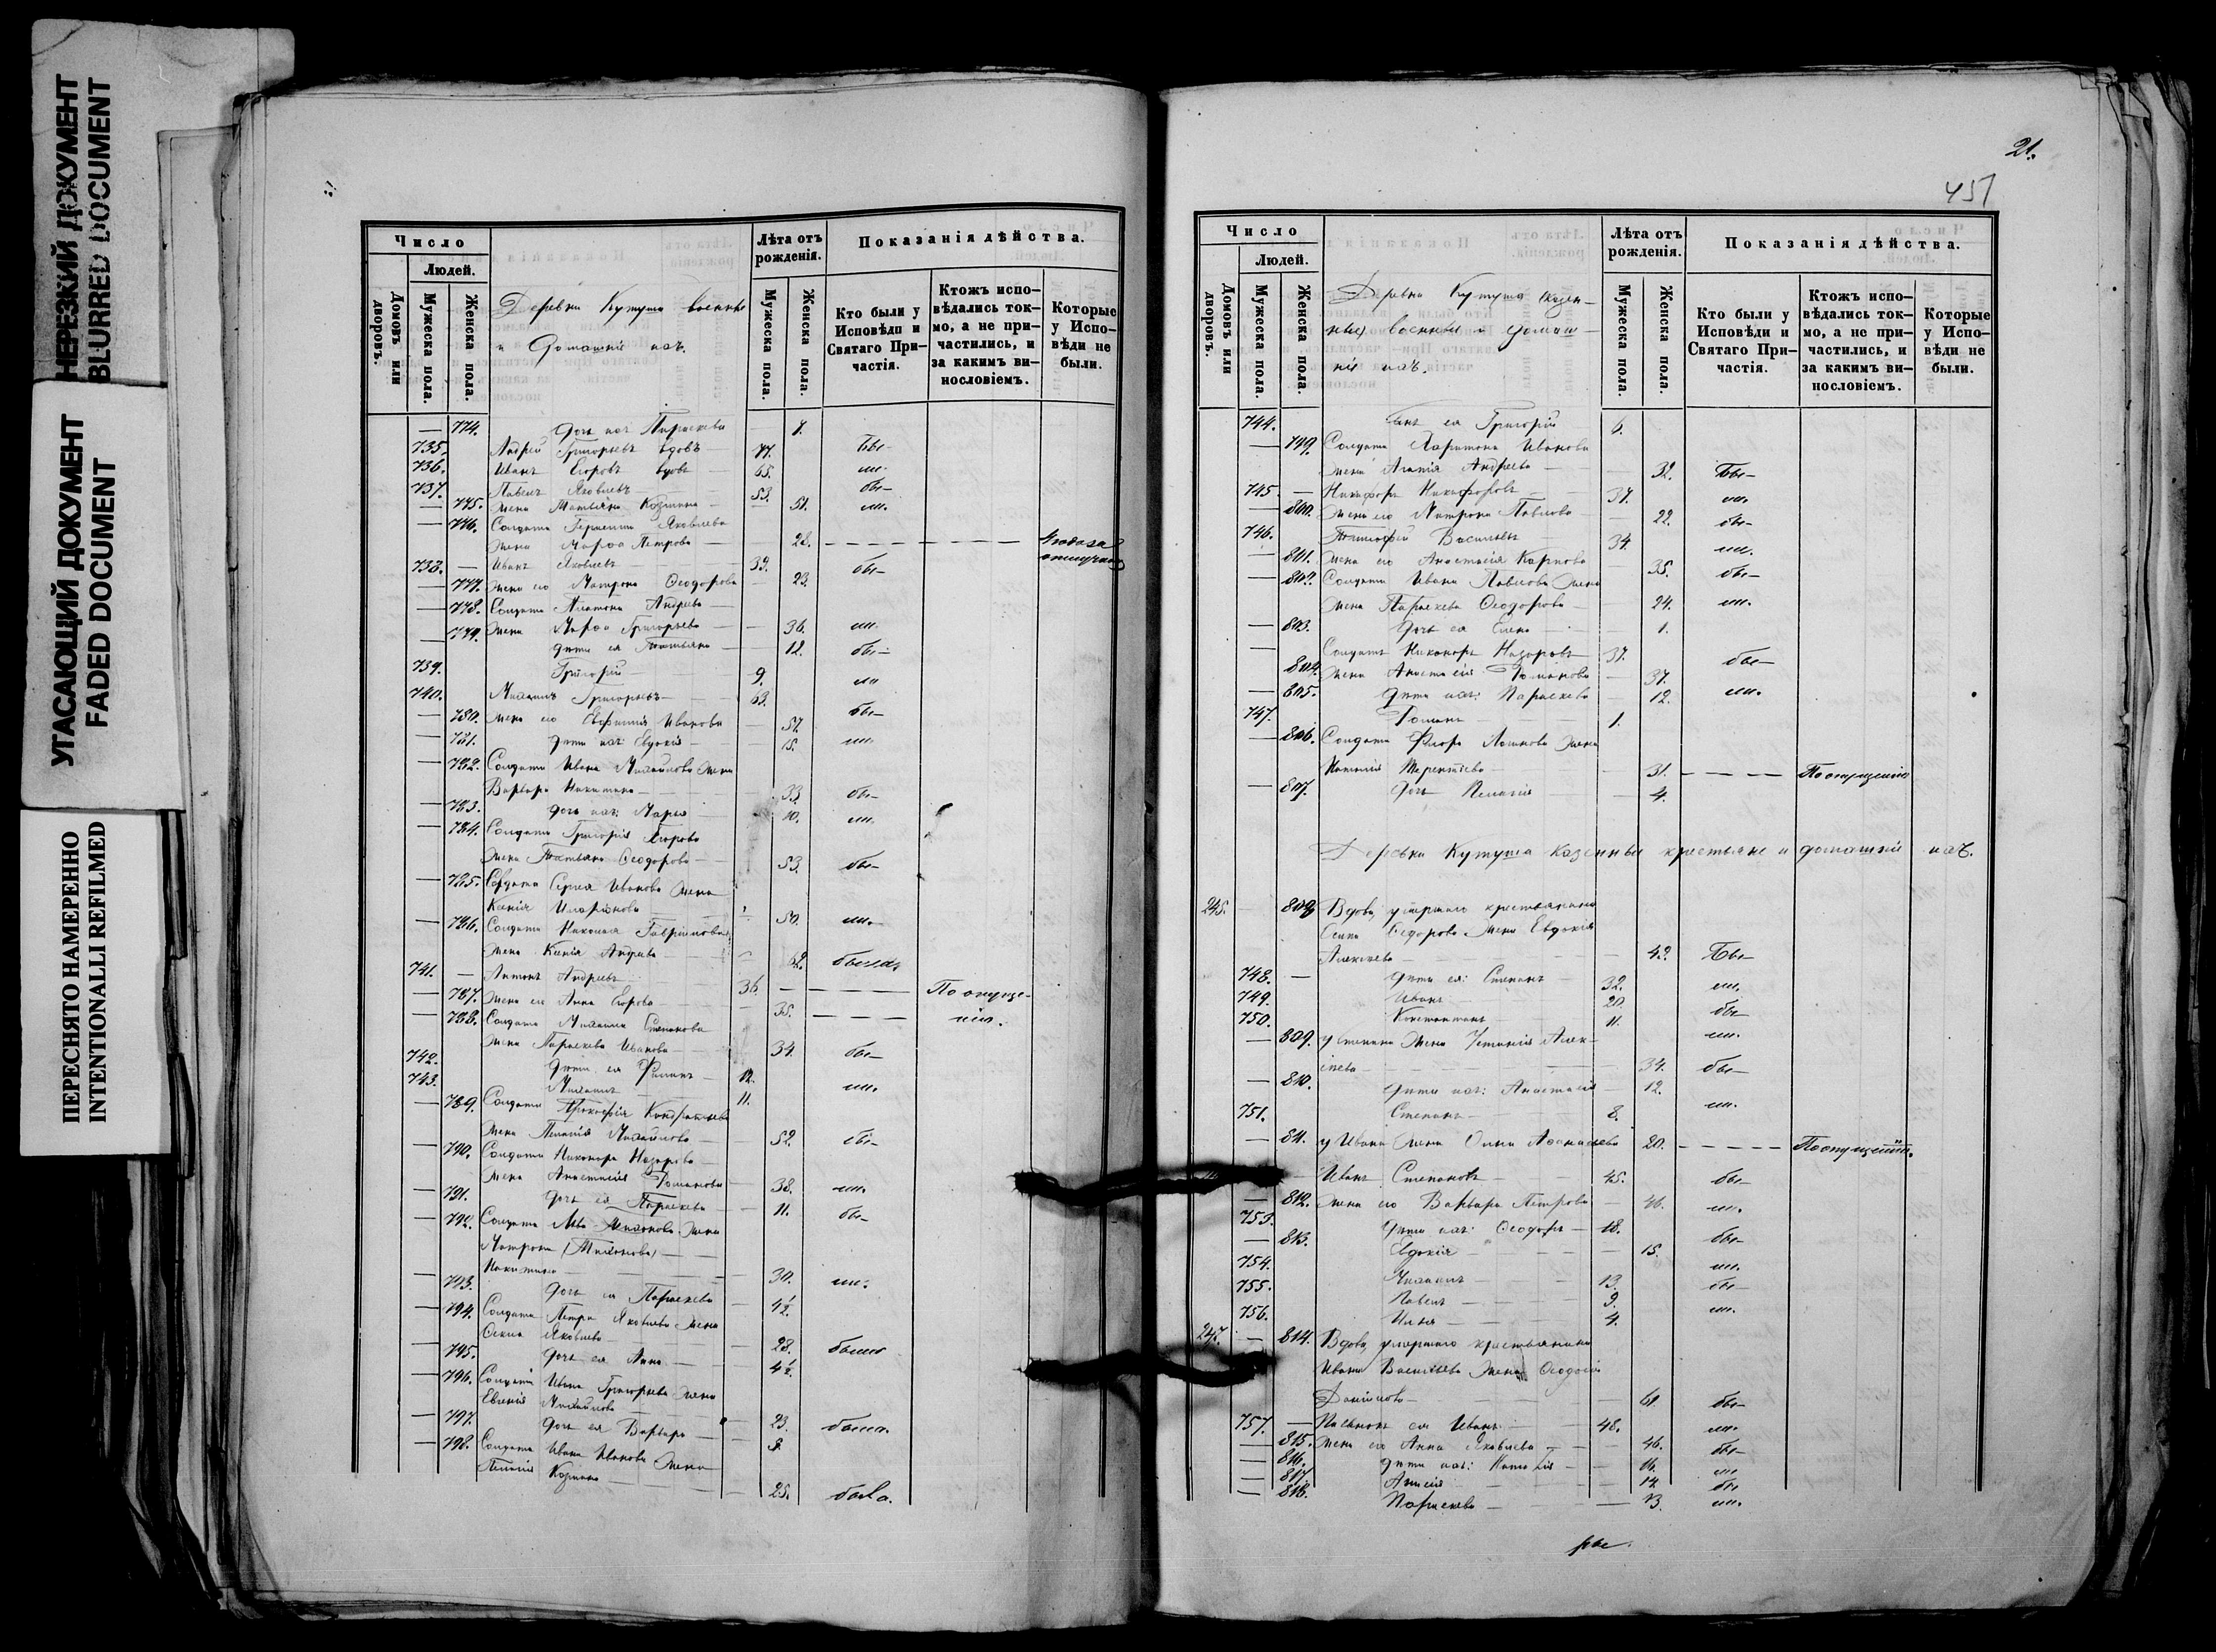 НЕРЕЗКИЙ ДОКУМЕНТ
BLURRED DOCUMENT
УГАСАЮЩИЙ ДОКУМЕНТ
FADED DOCUMENT
ПЕРЕСНЯТО НАМЕРЕННО
INTENTIONALLI REFILMED
Число
Людей.
Домовъ или дворовъ.
Мужеска пола.
Женска пола.
Деревни Кутуша военные
и домашніе ихъ.
Лѣта отъ рожденія.
Мужеска пола.
Женска пола.
Показанія дѣйства.
Кто были у Исповѣди и Святаго Причастія.
Ктожъ исповѣдались токмо, а не причастились, и за какимъ винословіемъ.
Которые у Исповѣди не были.
774. дочь ихъ Параскева 7.
735. Андрей Григорьевъ вдовъ 77. бы-
736. Иванъ Егоровъ вдовъ 65. ли.
737. Павелъ Яковлевъ 53. бы-
775. жена Матрона Козмина 51. ли.
776. Солдата Яковлева
жена Марфа Петрова 28.
738. Иванъ Яковлевъ 39. бы-
777. жена его Матрона Ѳеодорова 23.
778. Солдата Платона Андреева
жена Марфа Григорьева 36. ли.
779. дѣти ея Татьяна 12. бы-
739. Григорій 9. ли
740. Михаилъ Григорьевъ 63. бы-
780. жена его Евфимія Иванова 57.
781. дѣти ихъ: Евдокія 15. ли.
782. Солдата Ивана Михайлова жена
Варвара Никитина 33 бы-
783. дочь ихъ: Марья 10. ли.
784. Солдата Григорія Егорова
жена Татьяна Ѳеодорова 53. бы-
785. Солдата Сергея Иванова жена
Ксенія Иларіонова 50. ли.
786. Солдата Николая Гавріилова
жена Ксенія Андреева 62. была,
741. Антонъ Андреевъ 36.
787. жена его Анна Егорова 35. По опуще-
нію.
788. Солдата Михаила Степанова
жена Параскева Иванова 34. бы-
742. дѣти ея Филипъ 12.
743. Михаилъ 11. ли.
789. Солдата Прокофія Кондратьева
жена Пелагія Михайлова 52. бы-
790. Солдата Никонора Назарова
жена Анастасія Романова 38. ли.
791. дочь ея Параскева 11. бы-
792. Солдата Льва Тихонова жена
Матрона (Тихонова)
Никитина 30. ли.
793. дочь ея Параскева 4½.
794. Солдата Петра Яковлева жена
Яковлева 28. была
795. дочь ея Анна 4½.
796. Солдата Ивана Григорьева жена
Евгенія Михайлова 23. была.
797. дочь ея Варвара
798. Солдата Ивана Иванова жена
Пелагія Козмина 25. была.
21.
457
Число
Людей.
Домовъ или дворовъ.
Мужеска пола.
Женска пола.
Деревни Кутуша казен-
ные военные и домаш-
ніе ихъ.
Лѣта отъ рожденія.
Мужеска пола.
Женска пола.
Показанія дѣйства.
Кто были у Исповѣди и Святаго Причастія.
Ктожъ исповѣдались токмо, а не причастились, и за какимъ винословіемъ.
Которые у Исповѣди не были.
744. Сынъ ея Григорій 6.
799. Солдата Харитона Иванова
жена Агапія Андреева 32. Бы-
745. Никифоръ Никифоровъ 37. ли.
800. жена его Матрона Павлова 22. бы-
746. Тимофей Васильевъ 34. ли.
801. жена его Анастасія Карпова 35. бы-
802. Солдата Ивана Павлова жена
жена Параскева Ѳеодорова 24. ли.
803. дочь ея Елена 1.
Солдатъ Никоноръ Назаровъ 37. бы-
804. жена Анастасія Романова 37.
805. дѣти ихъ: Параскева 12. ли.
747. Романъ 1.
806. Солдата Флора Логинова жена
Наталія Терентіева 31. По опущенію
807. дочь Пелагія 4.
Деревни Кутуша казенные крестьяне и домашніе ихъ.
245. 808. Вдова, умершаго крестьянина
Осипа Ѳедорова жена Евдокія
Алексѣева 42. Бы-
748. дѣти ея: Степанъ 32. ли.
749. Иванъ 20. бы-
750. Константинъ 11. ли.
809. у Степана жена Устинія Алек-
сѣева 34. бы-
810. дѣти ихъ: Анастасія 12.
751. Степанъ 8. ли.
811. у Ивана жена Анна Аѳанасьева 20. По опущенію.
Иванъ Степановъ 45. бы-
812. жена его Варвара Петрова 46. ли.
753. дѣти ихъ: Ѳеодоръ 18. бы-
813. Евдокія 15. ли.
754. Михаилъ 13. бы-
755. Павелъ 9. ли.
756. Илья 4.
247. 814. Вдова, умершаго крестьянина
Ивана Васильева жена Ѳеодосія
Данилова 61. бы-
757. Пасынокъ ея Иванъ 48. ли.
815. жена его Анна Яковлева 46. бы-
816. дѣти ихъ: Наталія 16. ли
817. Анисія 14. бы
818. Параскева 13. ли.